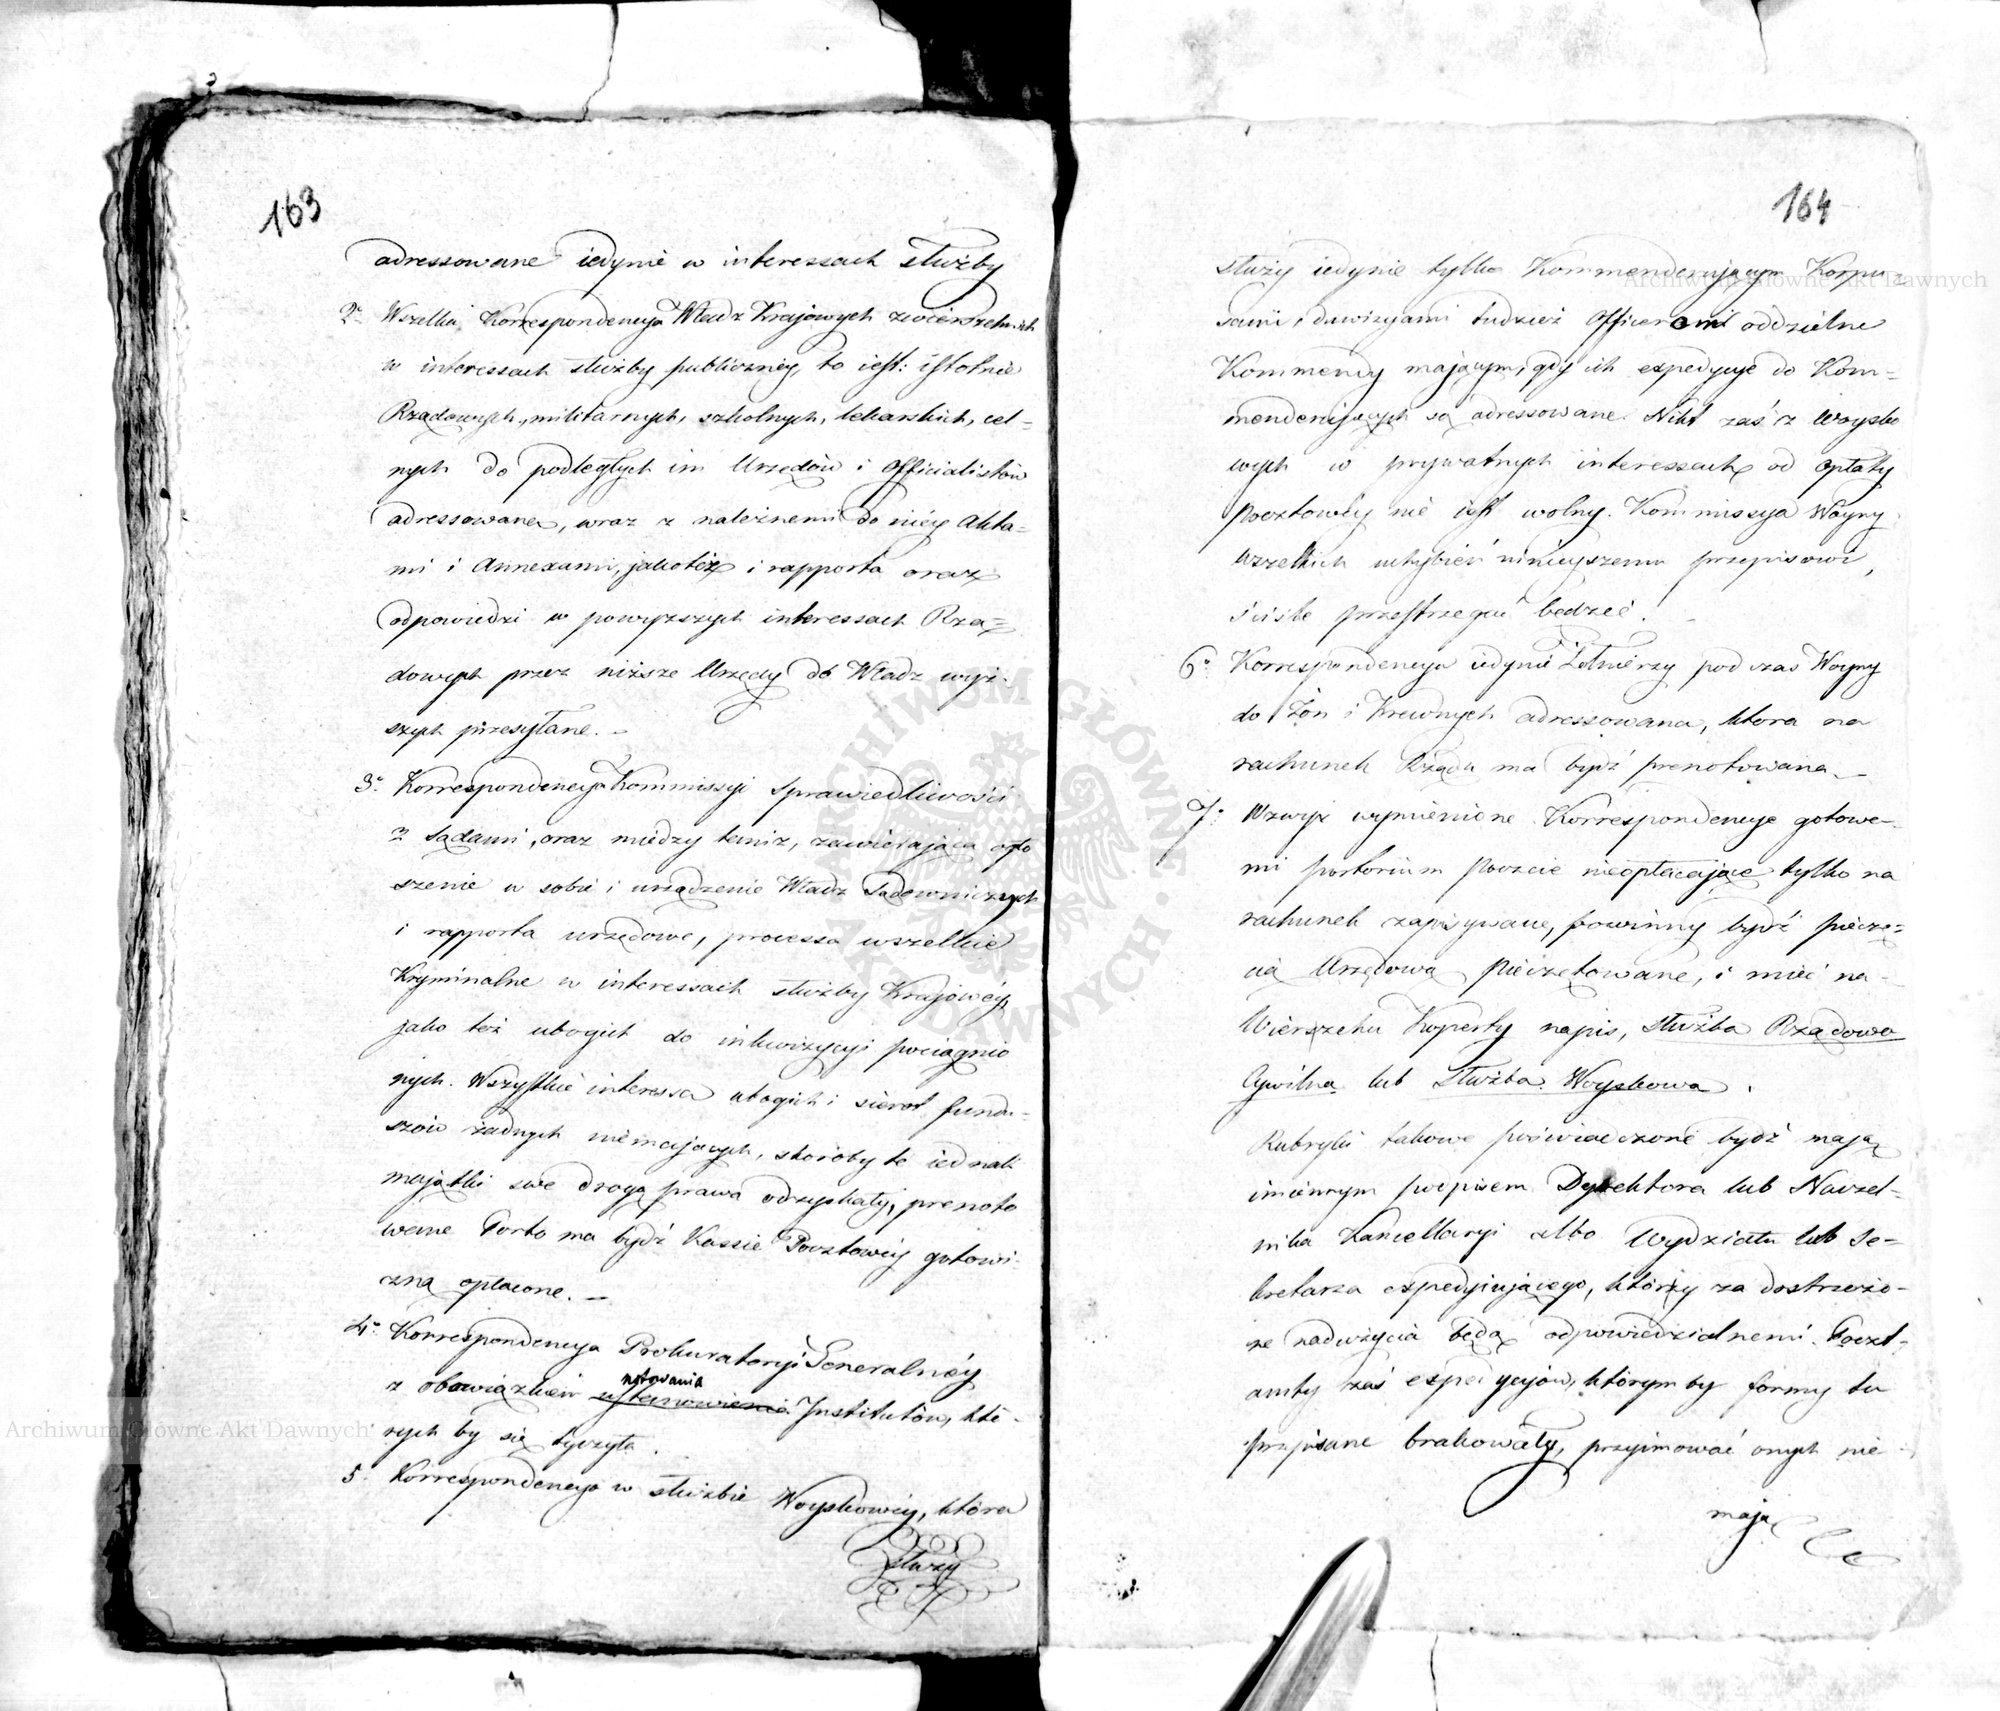 163
adressowane iedynie w interessach służby
2° Wszelka Korrespondencya Władz Krajowych zwierzchnich
w interessach służby publiczney, to iest: istotnie
Rządowych, militarnych, szkolnych, lekarskich, cel=
nych do podległych im Urzędów i Officialistów
adressowana, wraz z należnemi do niéy Akta=
mi i Annexami, jakoteż i rapporta oraz
odpowiedzi w powyższych interessach Rzą=
dowych przez niższe Urzędy do Władz wyż=
szych przesyłane. —
3° Korrespondencya Kommissyi Sprawiedliwości
z Sądami, oraz miedzy temiż, zawierająca ogło
szenie w sobie i urządzenie Władz Sądowniczych
i rapporta urzędowe, processa wszelkie
Kryminalne w interessach służby Krajowéy,
jako też ubogich do inkwizycyi pociągnio
nych. Wszystkie interessa ubogich i sierot fundu=
szów żadnych niemających, skoroby te iednak
majątki swe drogą prawa odzyskały, prenoto
wane Porto ma bydź Kassie Pocztowéy gotowi=
zną opłacone. —
4° Korrespondencya Prokuratoryi Generalnéy
notowania
z obowiązkiem ustanowienia Institutów, któ=
rych by się tyczyła.
5° Korrespondencya w służbie Woyskowéy, która
służy
164
służy iedynie tylko Kommenderującym Korpu=
sami, dywizyami tudzież Officerami oddzielne
Kommendy mającym, gdy ich expedycye do Kom=
menderujących są adressowane. Nikt zaś z Woysko
wych w prywatnych interessach od opłaty
Pocztowéy nie iest wolny. Kommissya Woyny
wszelkich uchybień ninieyszemu przepisowi,
ściśle przestrzegać bedzie.
6° Korrespondencya iedynie Żołnierzy podczas Woyny
do Żon i Krewnych adressowana, ktora na
rachunek Rządu ma bydź prenotowana. —
7° Wzwyż wymienione Korrespondencye gotowe=
mi portorium Poczcie nieopłacające tylko na
rachunek zapisywane, powinny bydź pieczę=
cią Urzędową pieczętowane, i mieć na
Wierzchu Koperty napis, służba Rządowa
Cywilna lub Służba Woyskowa.
Rubryki takowe poświadczone bydź mają
imiennym podpisem Dyrektora lub Naczel=
nika Kancellaryi albo Wydziału lub Se=
kretarza expedyiującego, którzy za dostrzeżo=
ne nadużycia będą odpowiedzialnemi. Poczt=
amty zaś expedycyiów, którym by formy tu
przepisane brakowały, przyimować onych nie
mają
Archiwum Główne Akt Dawnych
Archiwum Główne Akt Dawnych
ARCHIWUM GŁÓWNE AKT DAWNYCH